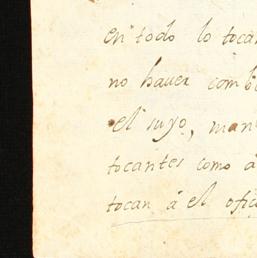 en todo lo tocan
no haver comb
el suyo, man
tocantes como á
tocan á el ofic